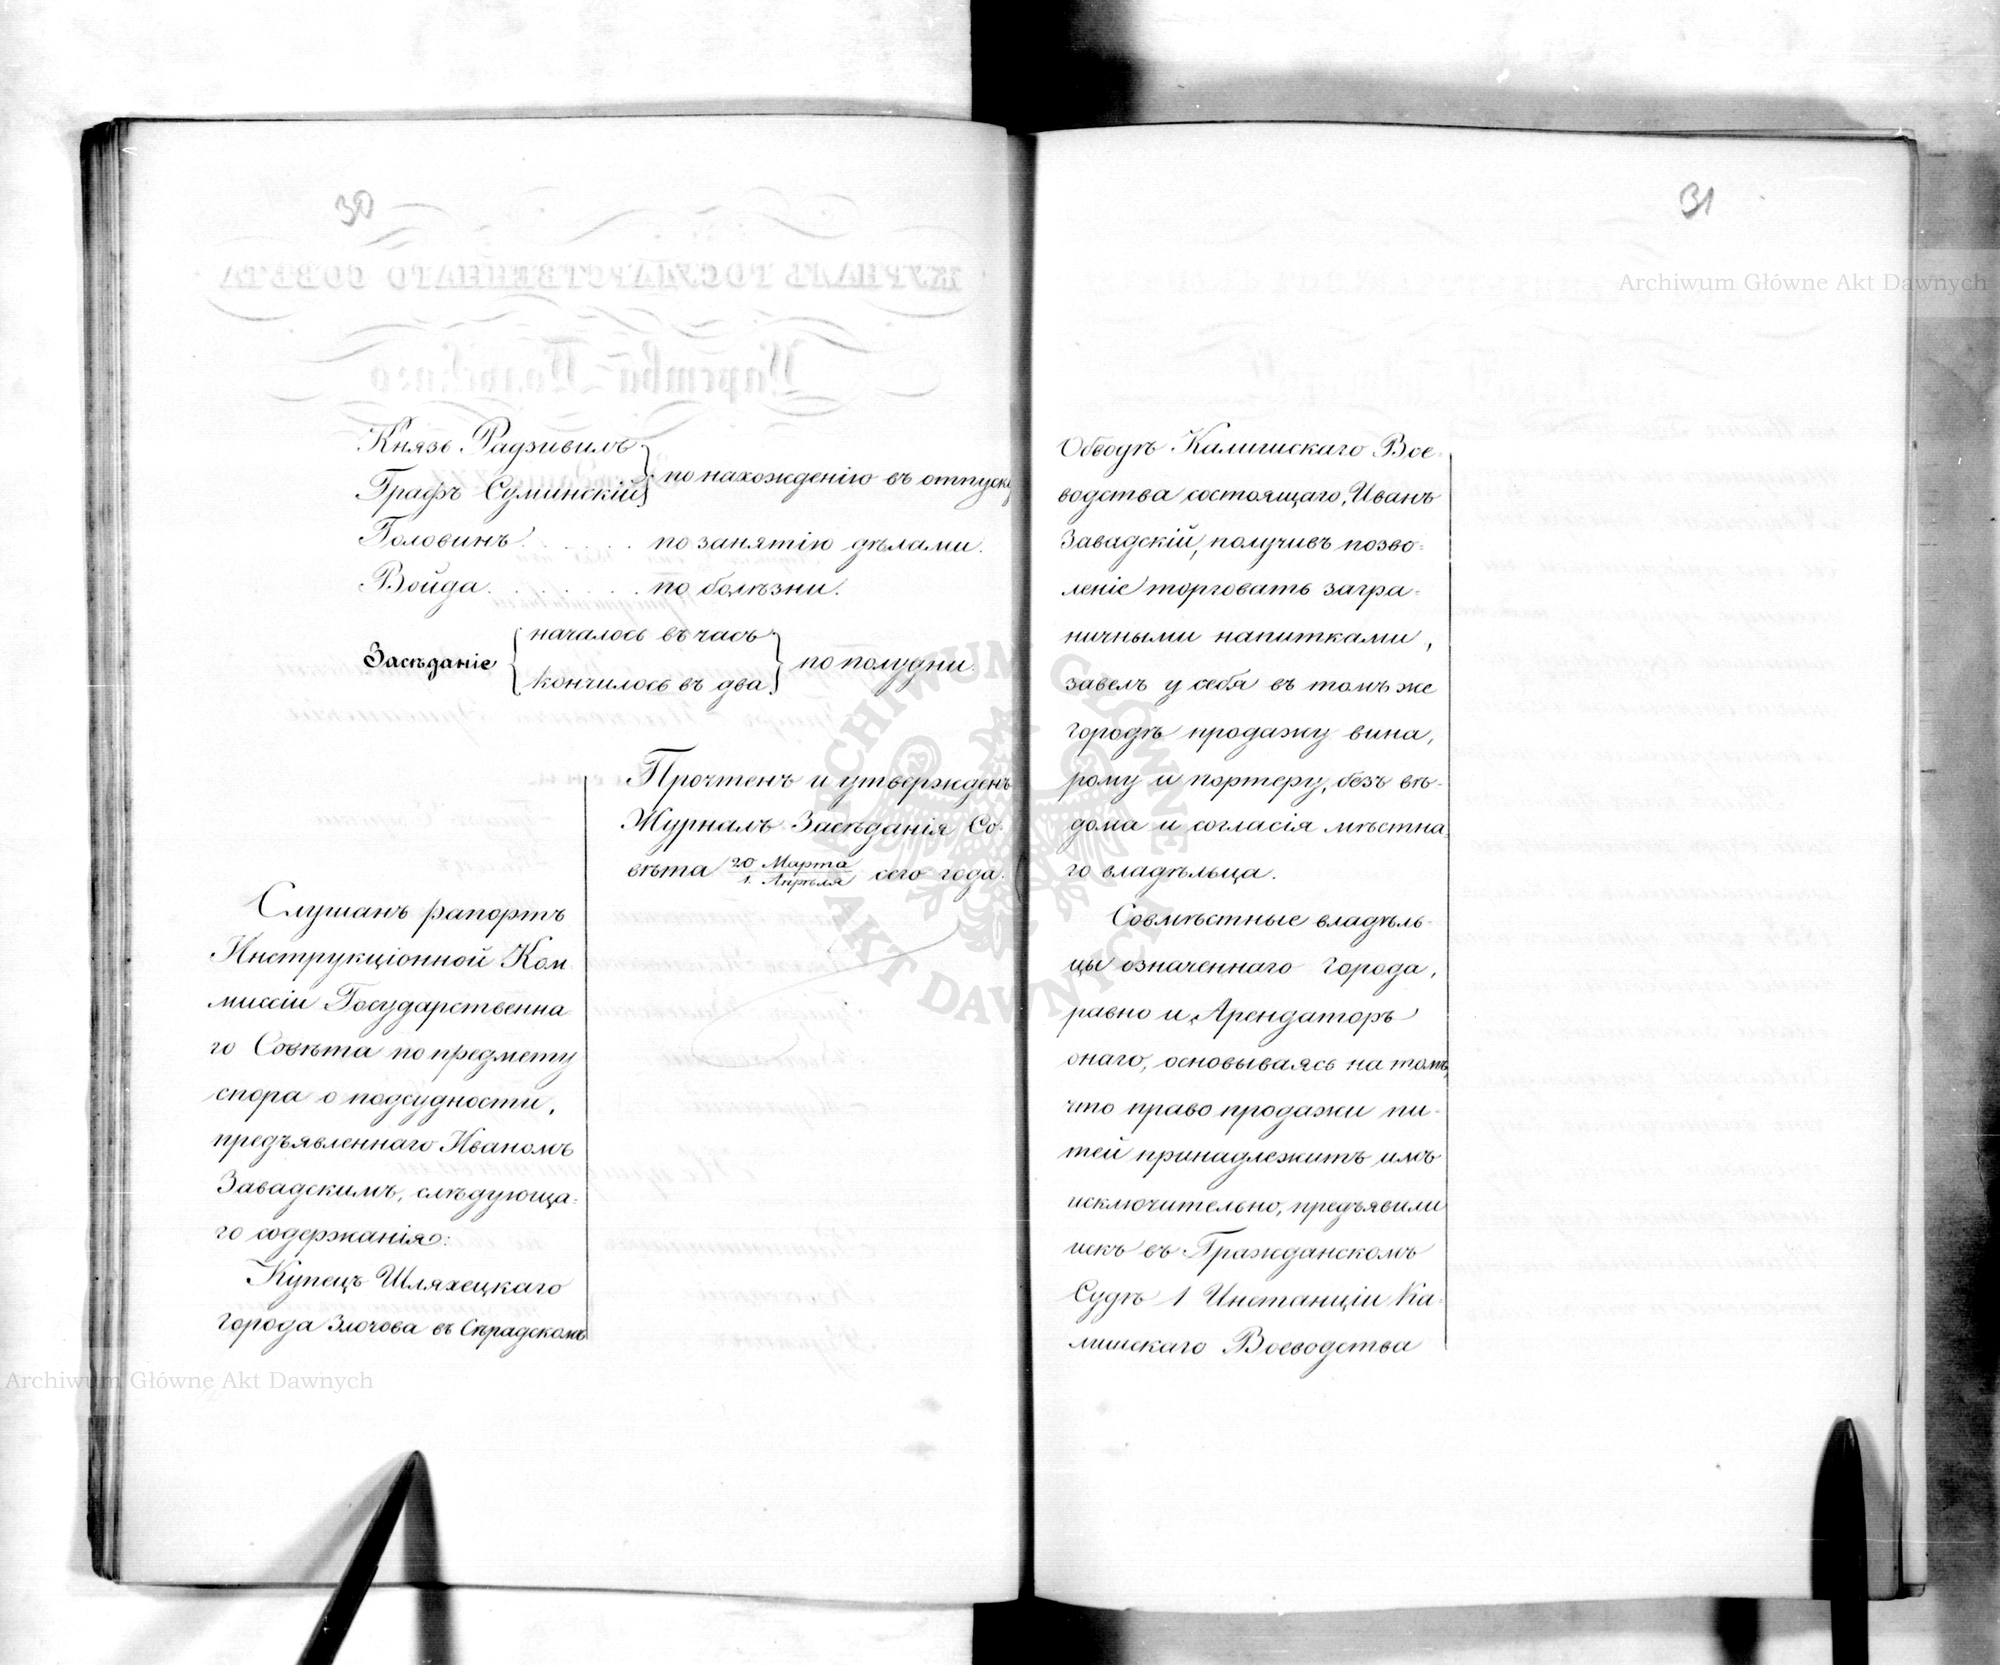 30
Князь Радзивилъ
Графъ Суминскій
по нахожденію въ отпуску
Головинъ . . . . . . по занятію дѣлами.
Войда . . . . . . . по болѣзни.
Засѣданіе
началось въ часъ
кончилось въ два
по полудни.
Прочтенъ и утвержденъ
Журналъ Засѣданія Со-
вѣта 20 Марта / 1. Апрѣля сего года.
Слушанъ рапортъ
Инструкціонной Ком-
миссіи Государственна-
го Совѣта по предмету
спора о подсудности,
предъявленнаго Иваномъ
Завадскимъ, слѣдующа-
го содержанія:
Купецъ Шляхецкаго
города Злочова въ Сѣрадскомъ
31
Обводѣ Калишскаго Вое-
водства состоящаго, Иванъ
Завадскій, получивъ позво-
леніе торговать загра-
ничными напитками,
завелъ у себя въ томъ же
городѣ продажу вина,
рому и портеру, безъ вѣ-
дома и согласія мѣстна-
го владѣльца.
Совмѣстные владѣль-
цы означеннаго города,
равно и Арендаторъ
онаго, основываясь на томъ,
что право продажи пи-
тей принадлежитъ имъ
исключительно, предъявили
искъ въ Гражданскомъ
Судѣ 1 Инстанціи Ка-
лишскаго Воеводства
Archiwum Główne Akt Dawnych
Archiwum Główne Akt Dawnych
ARCHIWUM GŁÓWNE AKT DAWNYCH